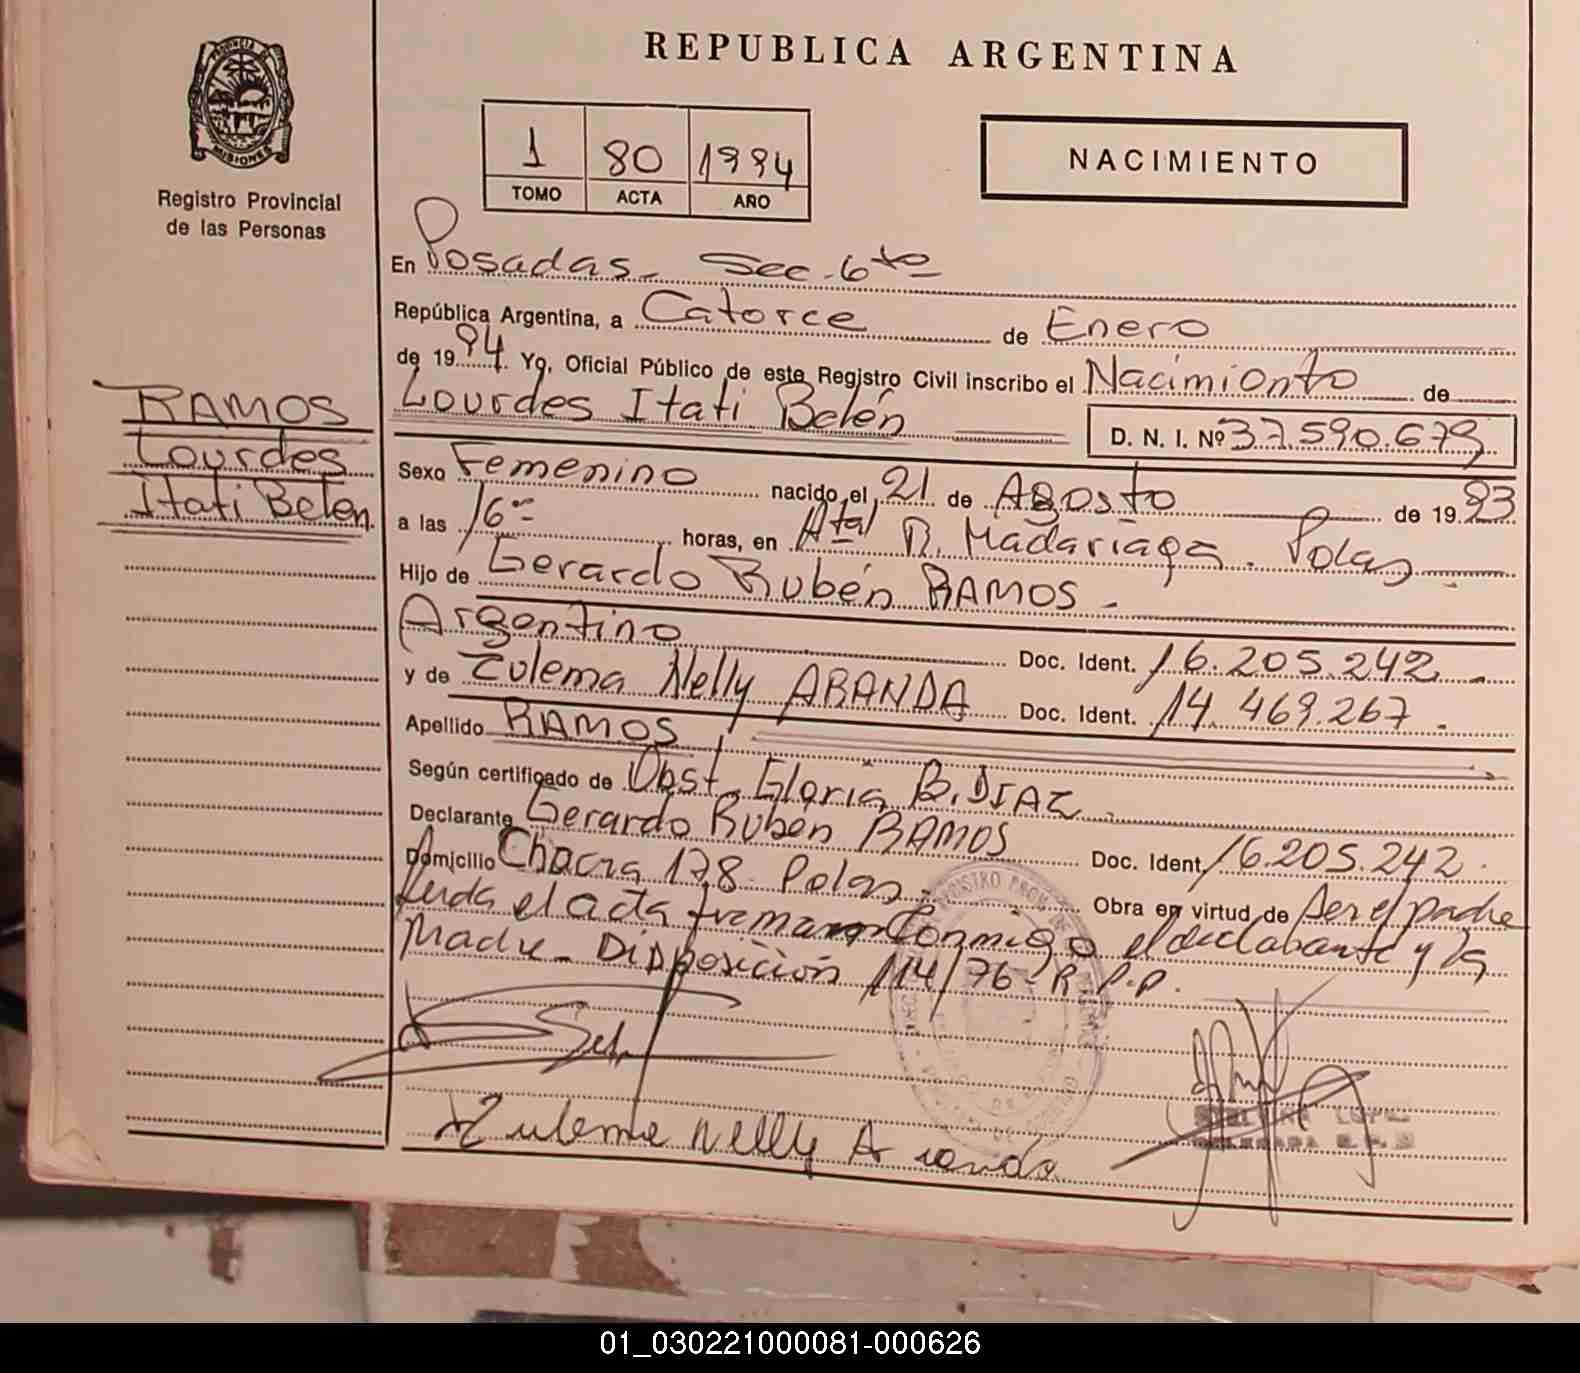 PROVINCIA DE
MISIONES
Registro Provincial
de las Personas
REPUBLICA ARGENTINA
1 80 1994
TOMO ACTA AÑO
NACIMIENTO
En Posadas - Sec. 6ta
República Argentina, a Catorce de Enero
de 1994. Yo, Oficial Público de este Registro Civil inscribo el Nacimionto de
Lourdes Itati Belén D. N. I. Nº 37.590.679
RAMOS
Lourdes
Itati Belen
Sexo Femenino nacido el 21 de Agosto de 1993
a las 16 horas, en Htal R. Madariaga. Pdas
Hijo de Gerardo Rubén RAMOS -
Argentino Doc. Ident. 16.205.242 -
y de Zulema Nelly ARANDA Doc. Ident. 14.469.267 -
Apellido RAMOS
Según certificado de Obst. Gloria B. DIAZ.
Declarante Gerardo Rubén RAMOS Doc. Ident. 16.205.242.
Domicilio Chacra 178 - Pdas. Obra en virtud de ser el padre
Leida el acta firman conmigo el declarante y la
Madre - Disposición 114/76 - R.P.P.
Zulema Nelly Aranda
01_030221000081-000626